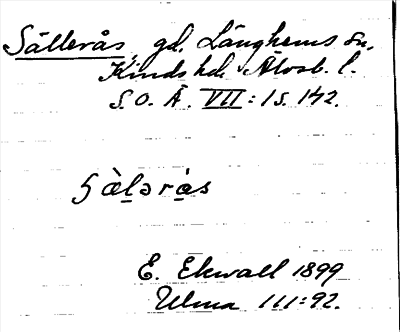 Sällerås, gd. Länghems sn.
Kinds hd. Älvsb. l.
S. O. Ä. VII: 1 s. 142.
sàl̥əràs
E. Ekwall 1899
Ulma 111:92.